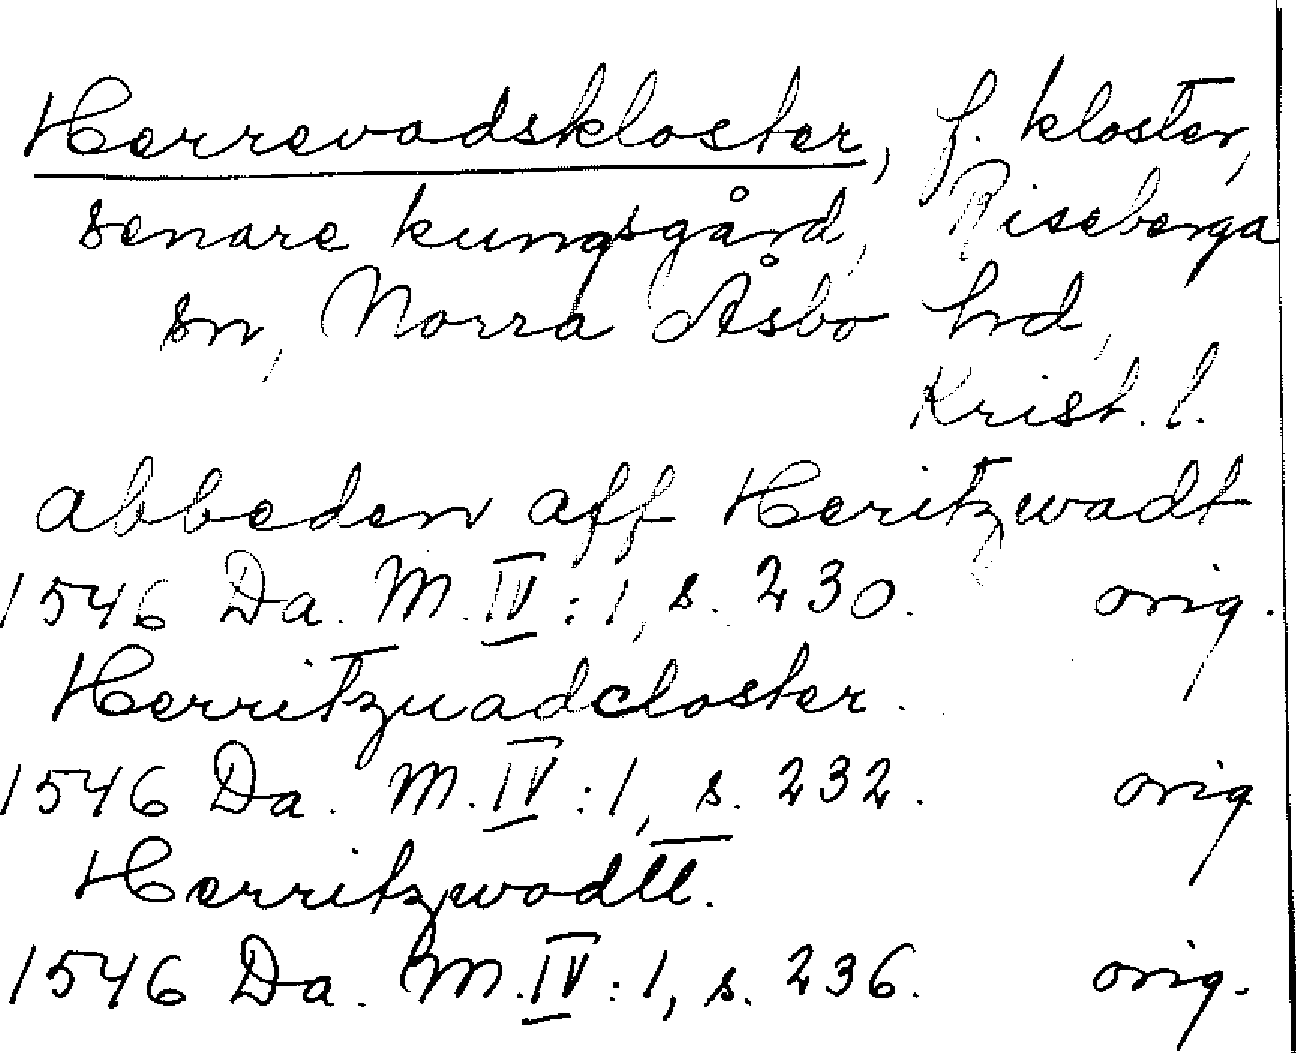 Herrevadskloster, f. kloster,
senare kungsgård, Riseberga
sn, Norra Åsbo hrd,
Krist. l.
abbeden aff Heritzwadt
1546 Da. M. IV:1, s. 230. orig.
Herritzuadcloster.
1546 Da. M. IV:1, s. 232. orig
Herritzwadtt.
1546 Da. M. IV:1, s. 236. orig.